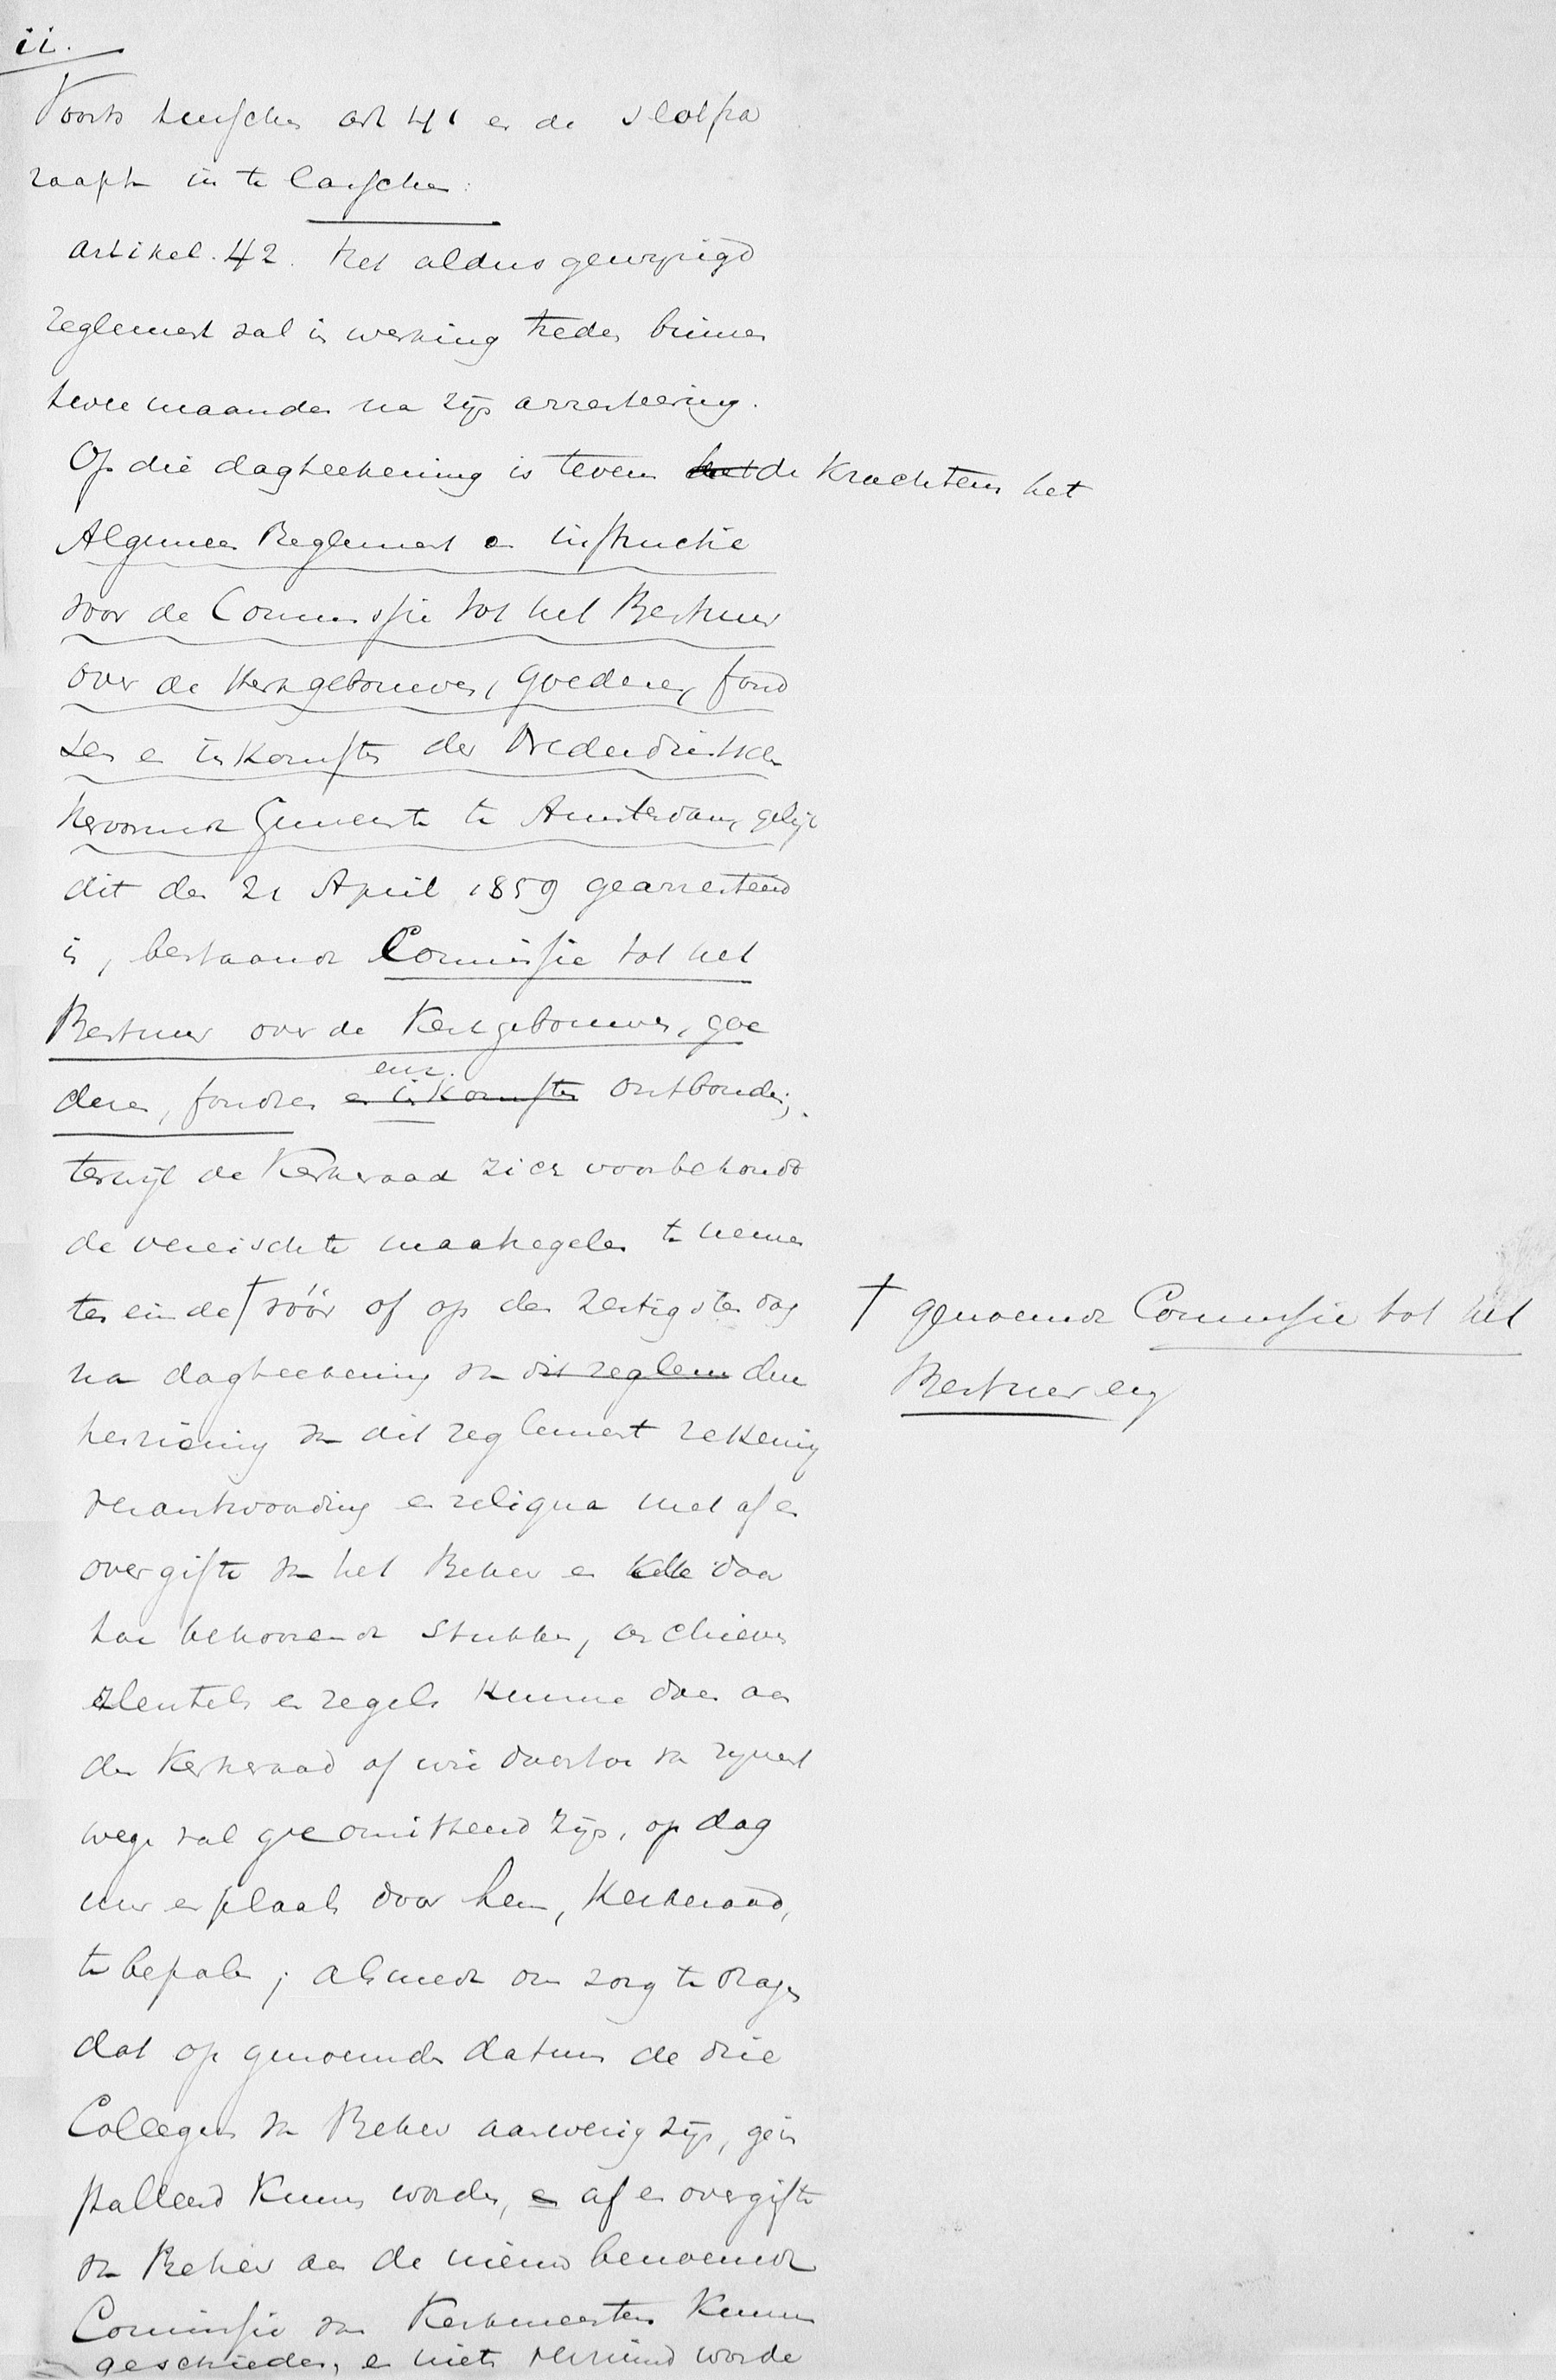 ii.
Voorts tusschen art 41 en de slotpa
raaph in te lasschen:
artikel. 42. Het aldus gewijzigd
reglement zal in werking treden binnen
twee maanden na zijn arresteering.
Op die dagteekening is tevens het de krachtens het
Algemeen Reglement en instructie
voor de Commissie tot het Bestuur
over de Kerkgebouwen, goederen, fond
sen en inkomsten der Nederduitsche
hervormde Gemeente te Amsterdam, gelijk
dit den 21 April 1859 gearresteerd
is, bestaande Commissie tot het
Bestuur over de Kerkgebouwen, goe
enz.
deren, fondsen en inkomsten ontbonden;
terwijl de Kerkeraad zich voorbehoudt
de vereischte maatregelen te nemen
ten einde † vóór of op den zestigsten dag
na dagteekening van dit reglem deze
herziening van dit reglement rekening
verantwoording en reliqua met af en
overgifte van het Beheer en alle daar
toe behoorende stukken, archieven
sleutels en zegels kunne doen aan
den Kerkeraad of wie daartoe van zijnent
wege zal gecommitteerd zijn, op dag
uur en plaats door hem, Kerkeraad,
te bepalen; alsmede om zorg te dragen
dat op genoemden datum de drie
Colleges van Beheer aanwezig zijn, geïn
stalleerd kunnen worden, en af en overgifte
van Beheer aan de nieuw benoemde
Commissie van Kerkmeesters kunne
geschieden, en niets verzuimd worde
† genoemde Commissie tot het
Bestuur enz